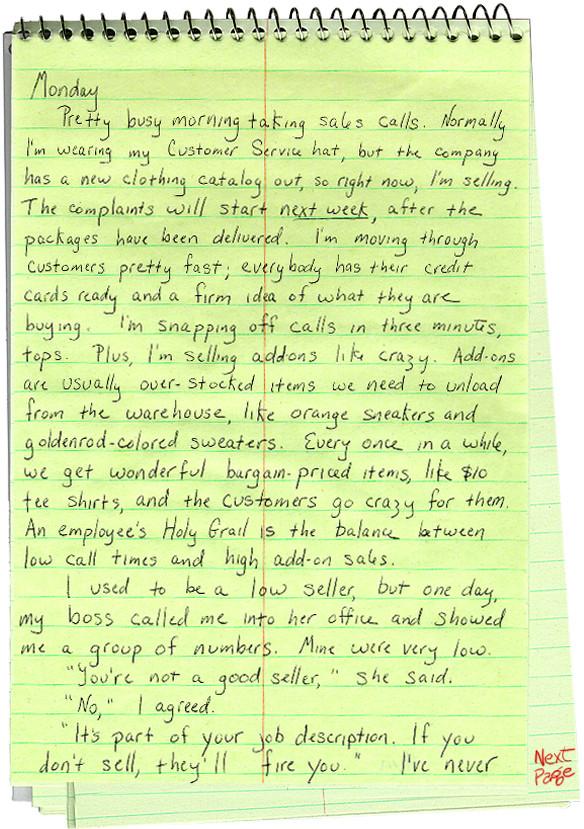 Monday
Pretty busy morning taking sales calls. Normally
I'm wearing my Customer Service hat, but the company
has a new clothing catalog out, so right now, I'm selling.
The complaints will start next week, after the
packages have been delivered. I'm moving through
customers pretty fast; everybody has their credit
cards ready and a firm idea of what they are
buying. I'm snapping off calls in three minutes,
tops. Plus, I'm selling addons like crazy. Add-ons
are usually over-stocked items we need to unload
from the warehouse, like orange sneakers and
goldenrod-colored sweaters. Every once in a while,
we get wonderful bargain-priced items, like $10
tee shirts, and the customers go crazy for them.
An employee's Holy Grail is the balance between
low call times and high add-on sales.
I used to be a low seller, but one day,
my boss called me into her office and showed
me a group of numbers. Mine were very low.
"You're not a good seller," she said.
"No," I agreed.
"It's part of your job description. If you
don't sell, they'll fire you." I've never
Next
Page